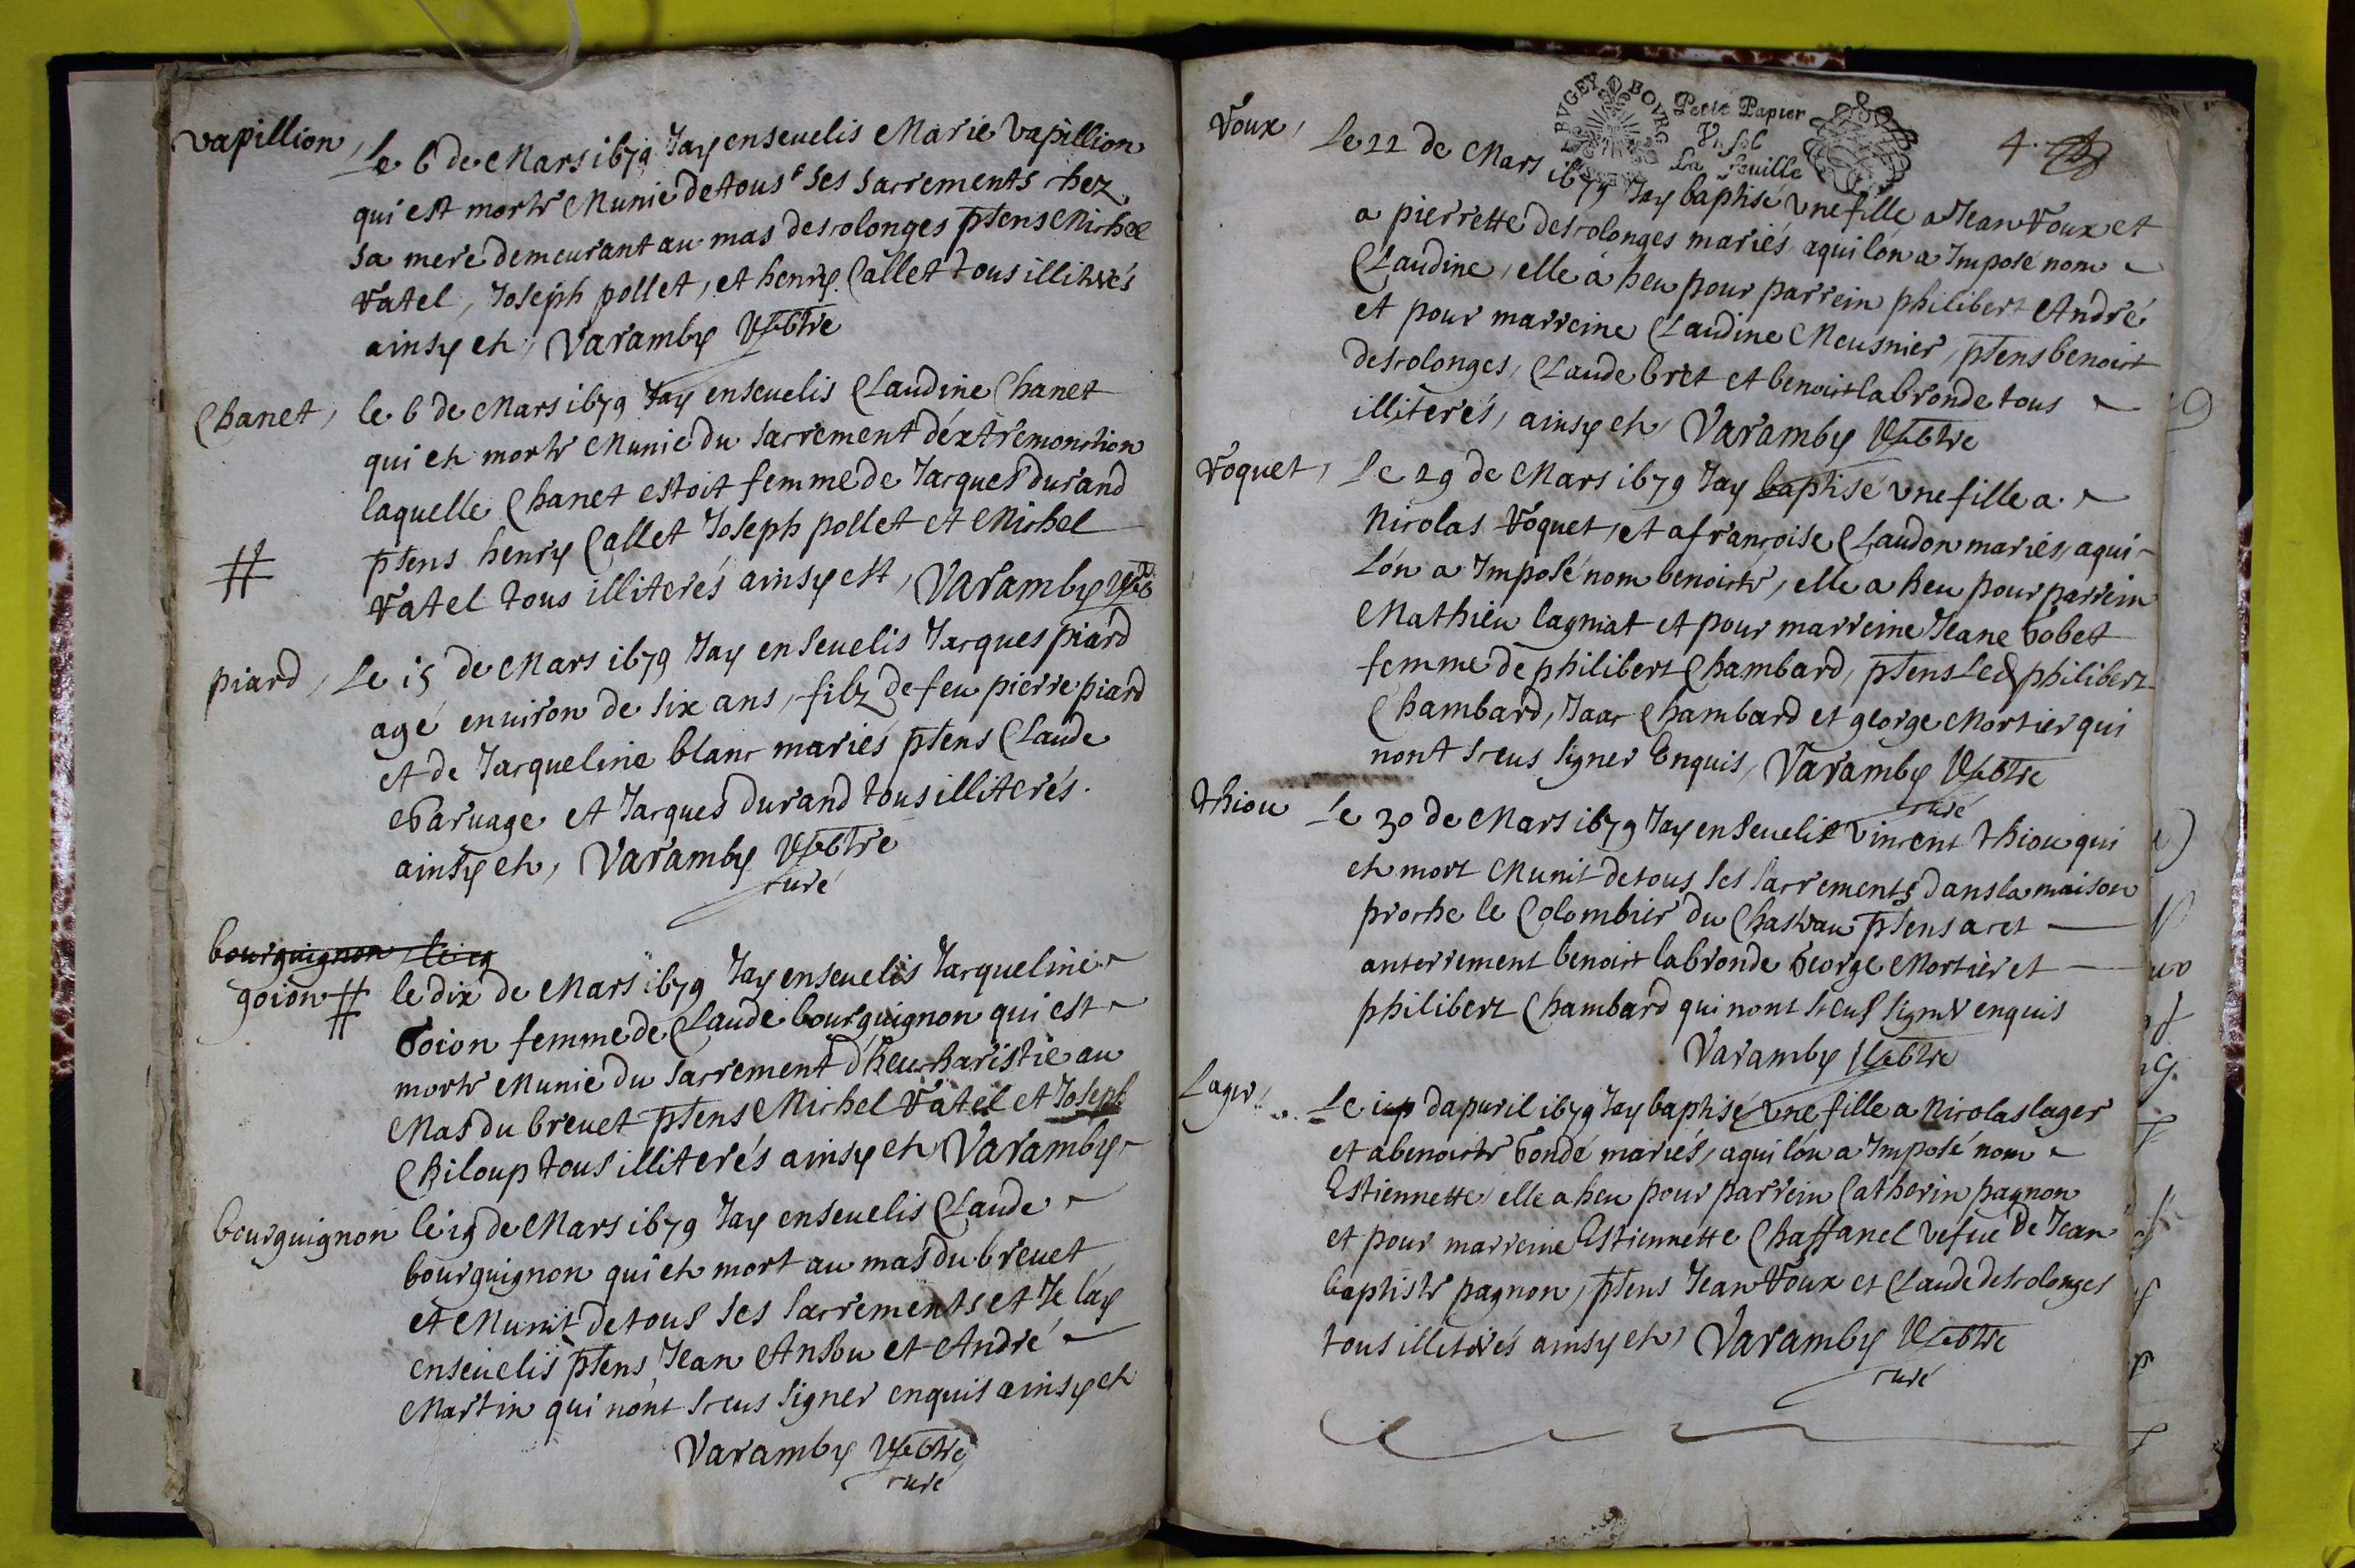 Vapillion, Le 6 de Mars 1679 Jay enseuelis Marie Vapillion
qui est morte Munie de tous ses sacrements chez
sa mere demeurant au mas descolonges ptens Michel
Vatel, Joseph pollet, et henry Callet tous illiterés
ainsy est, Varamby
Chanet, le 6 de Mars 1679 Jay enseuelis Claudine Chanet
qui est morte Munie du sacrement déxtremonction
laquelle Chanet estoit femme de Jacques durand
ptens henry Callet Joseph pollet et Michel
#
Vatel tous illiterés ainsy est, Varamby
piard, Le 15 de Mars 1679 Jay enseuelis Jacques piard
agé enuiron de six ans, filz de feu pierre piard
et de Jacqueline blanc mariés ptens Claude
Baruage et Jacques durand tous illiterés.
ainsy est, Varamby
curé
bourguignon
goion # le dix de Mars 1679 Jay enseuelis Jacqueline
Goion femme de Claude bourguignon qui est
morte Munie du sacrement d'heucharistie au
Mas du breuet ptens Michel Vatel et Joseph
Chiloup tous illiterés ainsy est Varamby
bourguignon le 19 de Mars 1679 Jay enseuelis Claude
bourguignon qui est mort au mas du breuet
et Munit de tous ses sacrements et Je láy
enseuelis ptens Jean et André
Martin qui nónt sceus signer enquis ainsy est
Varamby
curé
BVGEY BOVRG
Petit Papier
Vn sol
La feuille
4.
Voux, Le 22 de Mars 1679 Jay baptisé vne fille a Jean Voux et
a pierrette descolonges mariés, aqui lón a Imposé nom
Claudine, elle á heu pour parrein philibert André
et pour marreine Claudine Meusnier, ptens benoict
descolonges, Claude bret et benoict labronde tous
illiterés, ainsy est, Varamby
Voquet, Le 29 de Mars 1679 Jay baptisé vne fille a
Nicolas Voquet, et a françoise Claudon mariés, aqui
Lón a Imposé nom benoicte, elle a heu pour parrein
Mathieu lagniat et pour marreine Jeane Gobet
femme de philibert Chambard, ptens Led philibert
Chambard, Isaac Chambard et george Mortier qui
nont sceus signer Enquis, Varamby
curé
thiou Le 30 de Mars 1679 Jay enseuelis Vincent thiou qui
est mort Munit de tous ses sacrements dans la maison
proche le Colombier du Chasteau ptens acet
anterrement benoict labronde George Mortier et
philibert Chambard qui nont sceus signer enquis
Varamby
Lager, Le dapuril 1679 Jay baptisé vne fille a Nicolas lager
et a benoicte Gondé mariés, aqui lón a Imposé nom
Estiennette elle a heu pour parrein Catherin pagnon
et pour marreine Estiennette Chaffanel vefue de Jean
baptiste pagnon, ptens Jean Voux et Claude descolonges
tous illiterés ainsy est, Varamby
curé